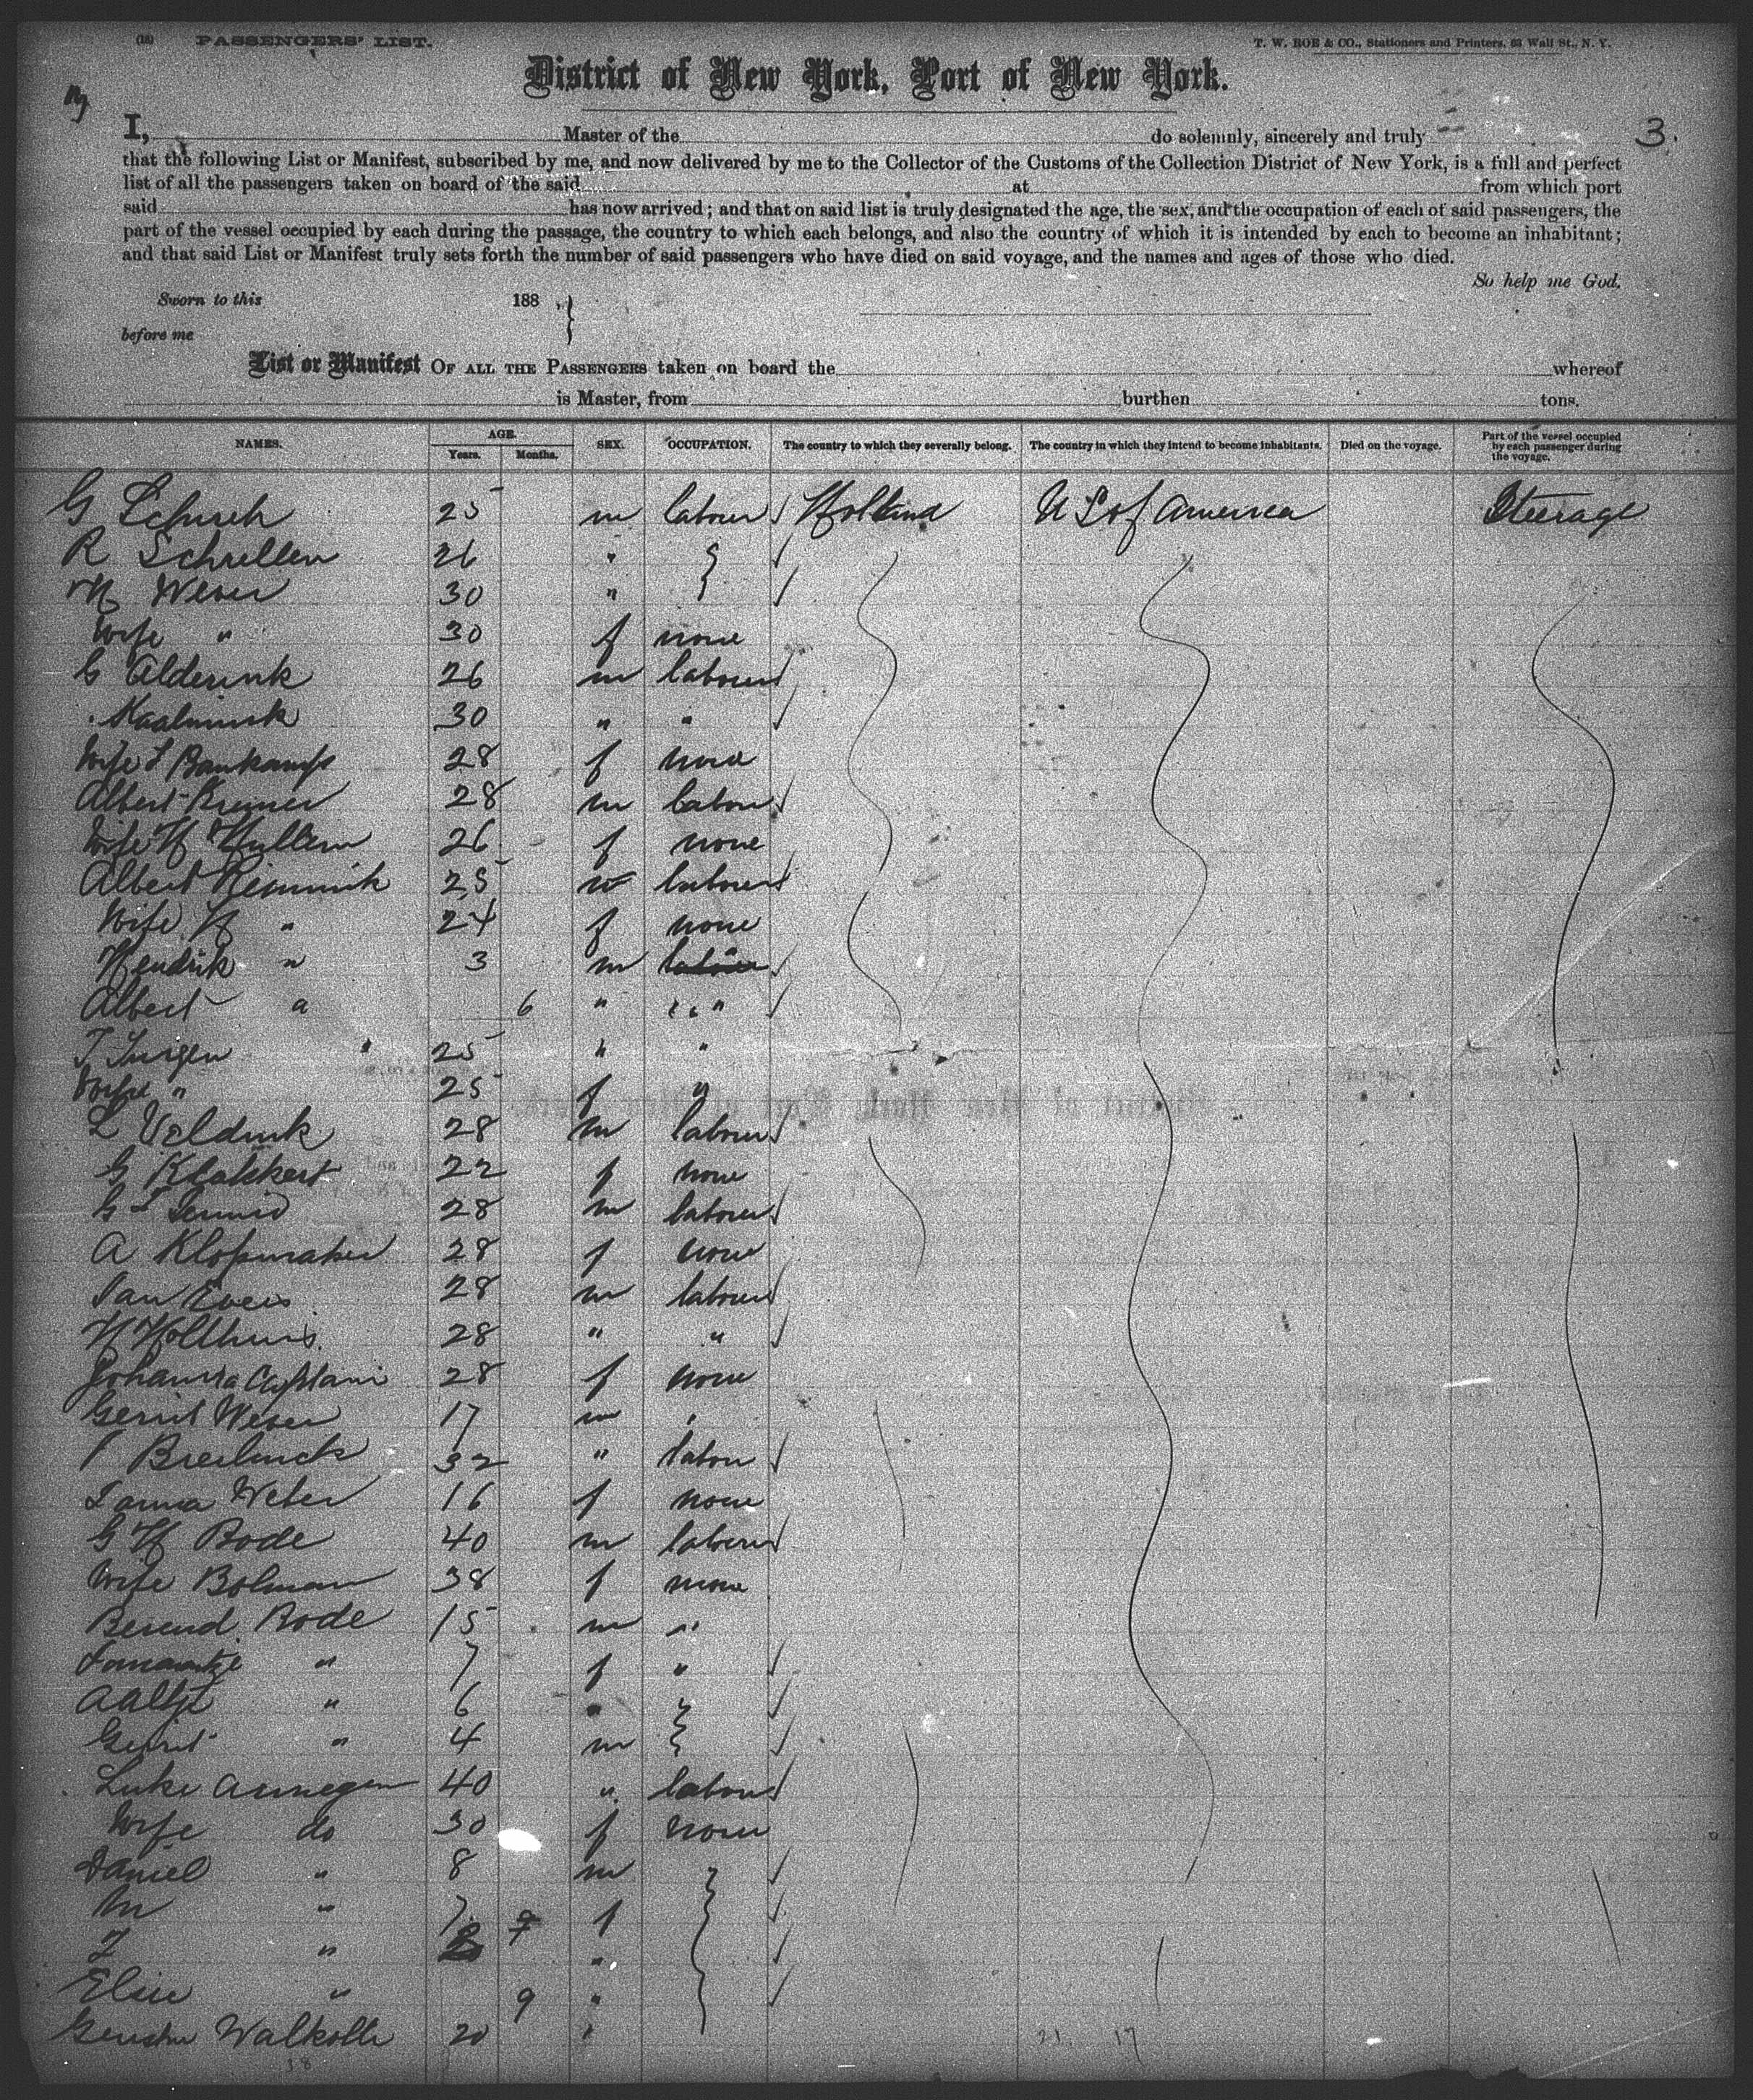 (18) PASSENGERS' LIST. T. W. ROE & CO., Stationers and Printers, 63 Wall St., N. Y.
District of New York, Port of New York.
I, Master of the do solemnly, sincerely and truly 3.
that the following List or Manifest, subscribed by me, and now delivered by me to the Collector of the Customs of the Collection District of New York, is a full and perfect
list of all the passengers taken on board of the said at from which port
said has now arrived; and that on said list is truly designated the age, the sex, and the occupation of each of said passengers, the
part of the vessel occupied by each during the passage, the country to which each belongs, and also the country of which it is intended by each to become an inhabitant;
and that said List or Manifest truly sets forth the number of said passengers who have died on said voyage, and the names and ages of those who died.
So help me God.
Sworn to this 188 , }
before me
List or Manifest OF ALL THE PASSENGERS taken on board the whereof
is Master, from burthen tons.
NAMES. AGE. Years. Months. SEX. OCCUPATION. The country to which they severally belong. The country in which they intend to become inhabitants. Died on the voyage. Part of the vessel occupied by each passenger during the voyage.
G 25 m labour Holland U S of America Steerage
R 26 "
Wever 30 "
Wife " 30 f none
G Alderink 26 m labour
30 " "
Wife Bankamp 28 f none
Albert Kremer 28 m labour
Wife H 26 f none
Albert 25 m labour
Wife H " 24 f none
Hendrik " 3 m
Albert " 6 " "
Jurgen 25 " "
Wife " 25 f "
Veldink 28 m labour
G 22 f none
G 28 m labour
A Klopmaker 28 f none
Jan Evers 28 m labour
H Holthuis 28 " "
Johanna Captain 28 f none
Gerrit Wever 17 m
32 " labour
Weber 16 f none
G H Bode 40 m labour
Wife Bolman 38 f none
Berend Bode 15 m "
" 7 f "
Aaltje " 6 "
Gerrit " 4 m
Luke 40 " labour
Wife do 30 f none
Daniel " 8 m
M " 7 f
" "
Elsie " 9 "
20 "
38 21 17